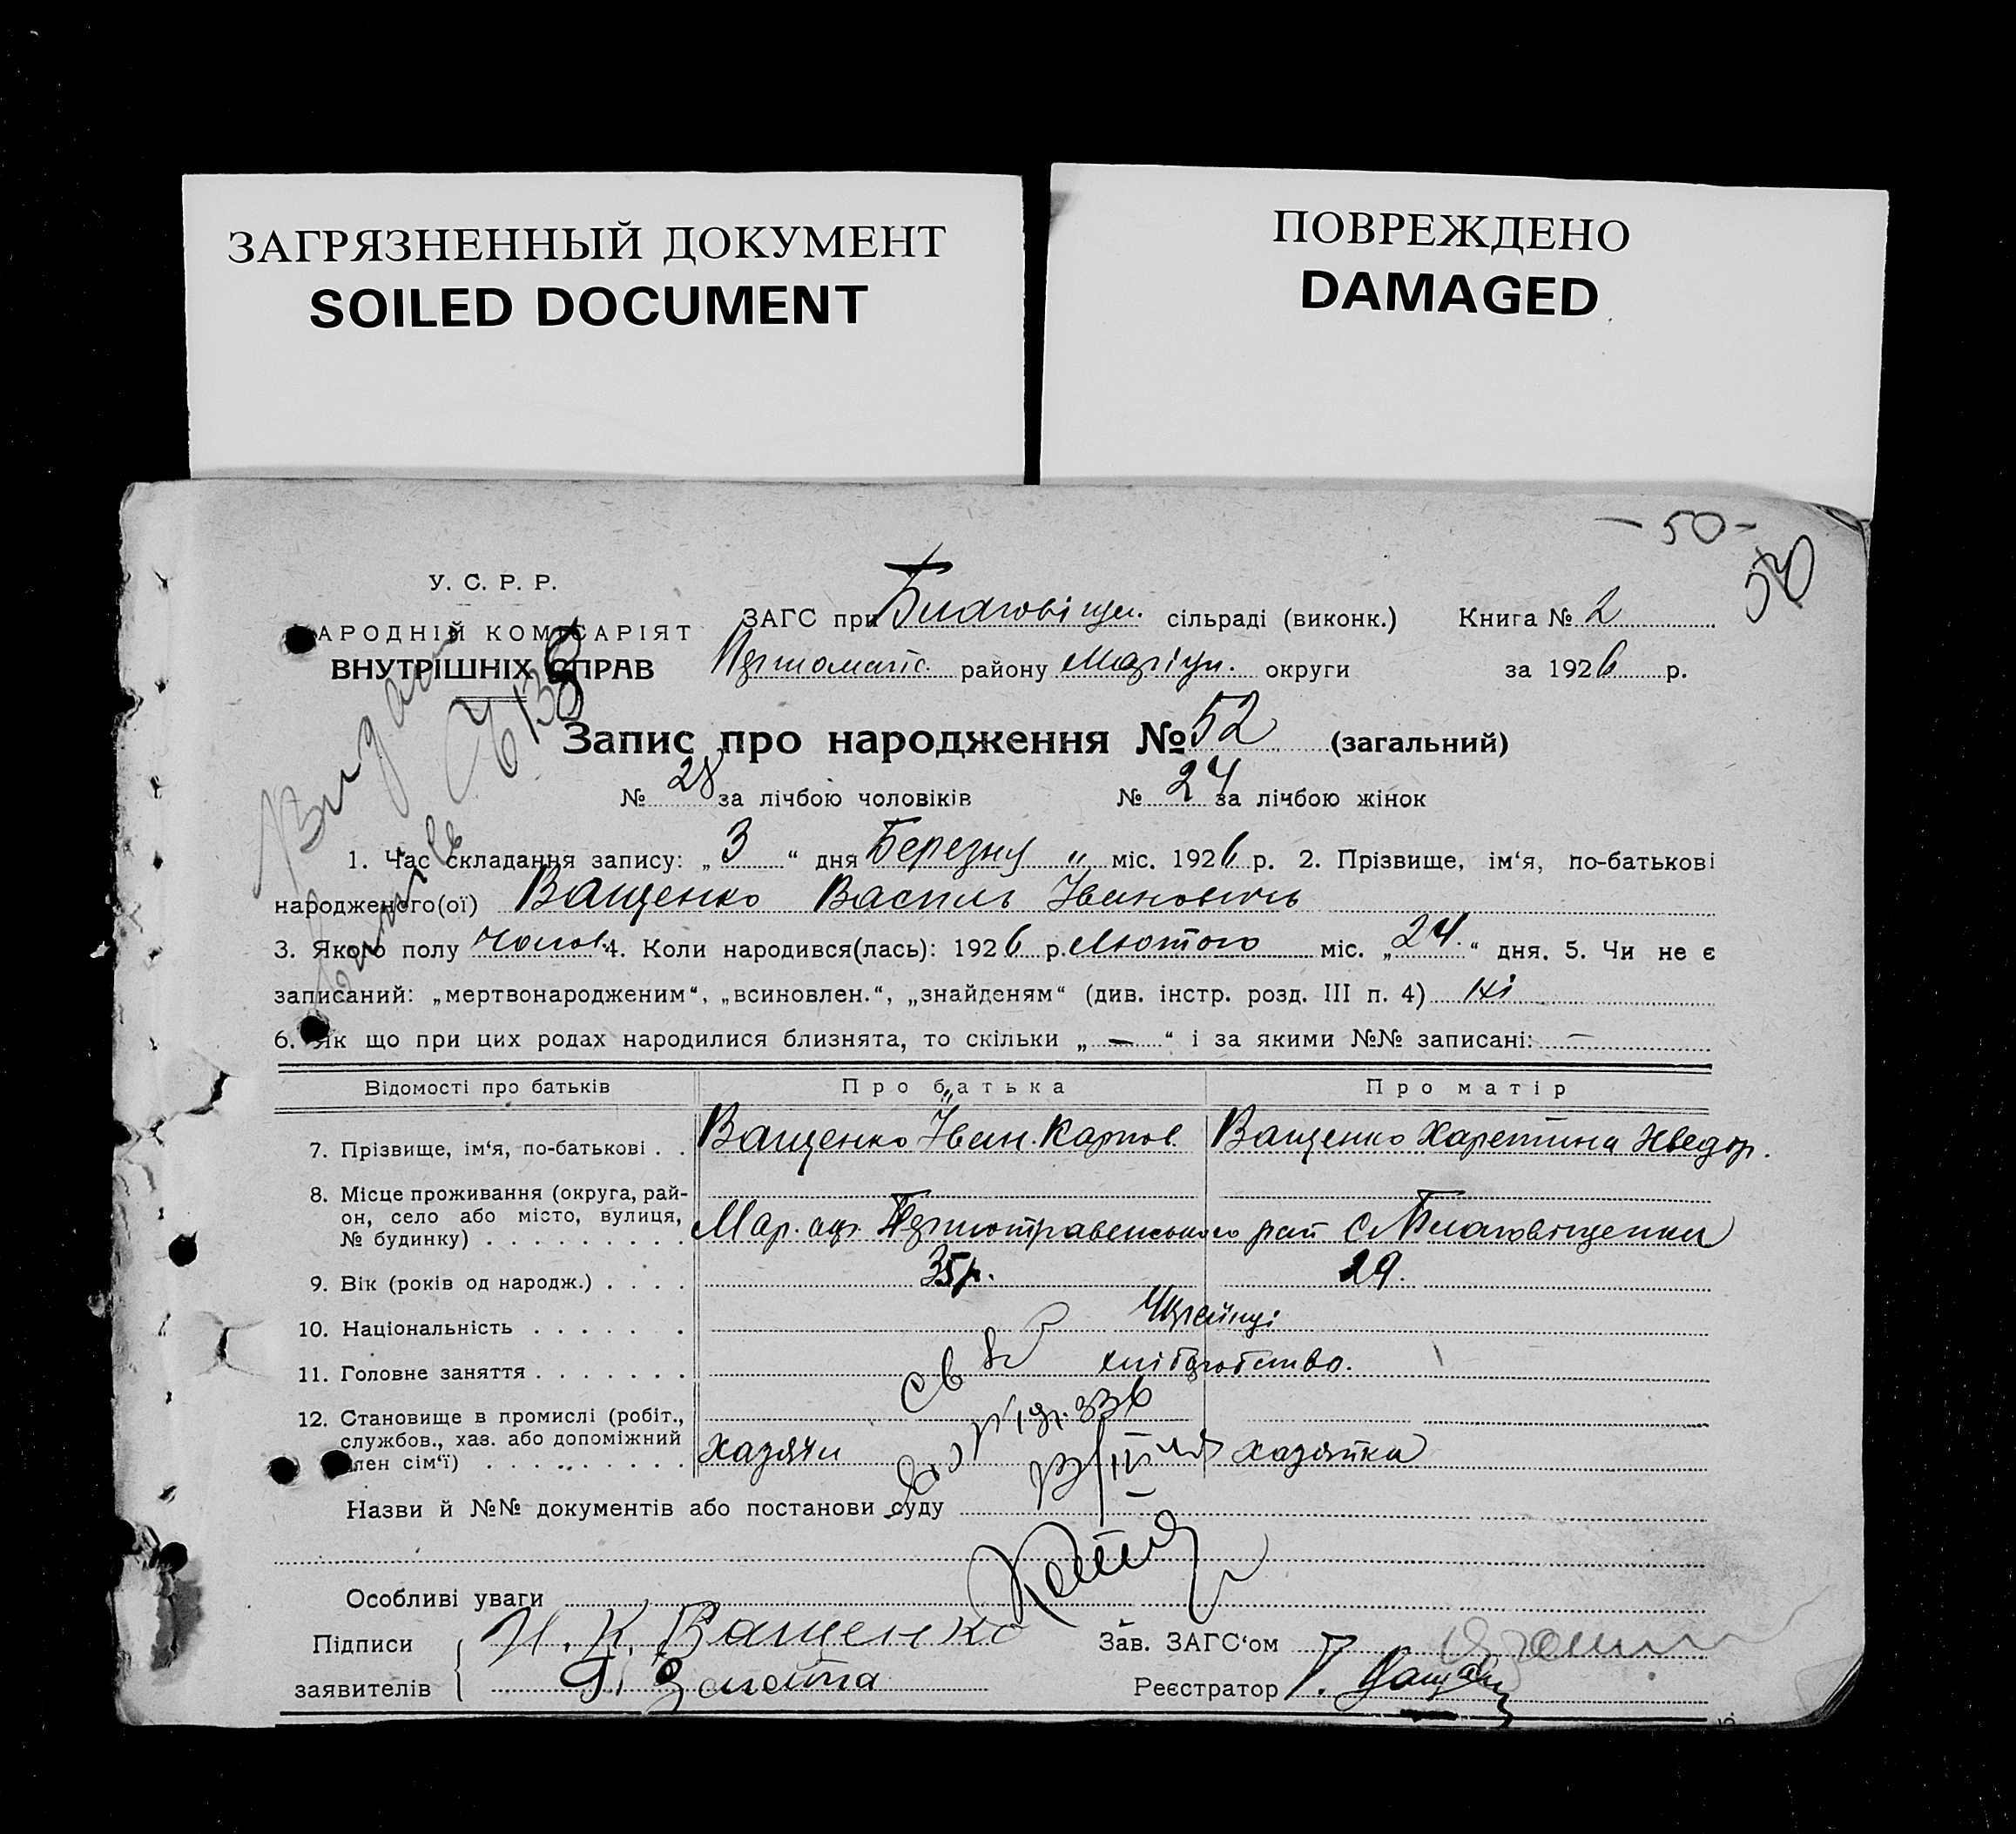 ЗАГРЯЗНЕННЫЙ ДОКУМЕНТ
SOILED DOCUMENT
ПОВРЕЖДЕНО
DAMAGED
- 50 -
50
У. С. Р. Р.
АРОДНІЙ КОМІСАРІЯТ
ВНУТРІШНІХ СПРАВ
ЗАГС при Благовіщ. сільраді (виконк.) Книга № 2
району Маріуп. округи за 1926 р.
Запис про народження № 52 (загальний)
№ 28 за лічбою чоловіків № 24 за лічбою жінок
1. Час складання запису: „ 3 “ дня Березня „ міс. 1926 р. 2. Прізвище, ім‘я, по-батькові
народженого(ої) Ващенко Василь Іванович
3. Якого полу Чолов. 4. Коли народився(лась): 1926 р. Лютого міс. „ 24. “ дня. 5. Чи не є
записаний: „мертвонародженим“, „всиновлен.“, „знайденям“ (див. інстр. розд. III п. 4) ні
6. Як що при цих родах народилися близнята, то скільки „ — “ і за якими №№ записані: —
Відомості про батьків Про батька Про матір
7. Прізвище, ім‘я, по-батькові . . Ващенко Іван Карпов. Ващенко Харетина Хведор.
8. Місце проживання (округа, рай-
он, село або місто, вулиця,
№ будинку) . . . . . . . . . Мар. окр. Першотравенського рай с. Благовіщенка
9. Вік (років од народж.) . . . . 35 р. 29.
10. Національність . . . . . . . Українці
11. Головне заняття . . . . . . . хліборобство.
12. Становище в промислі (робіт.,
службов., хаз. або допоміжний
член сім‘ї) . . . . . . . . . хазяїн хазяйка
Назви й №№ документів або постанови суду
Особливі уваги
Підписи И. К. Ващенко Зав. ЗАГС‘ом
заявителів Реєстратор